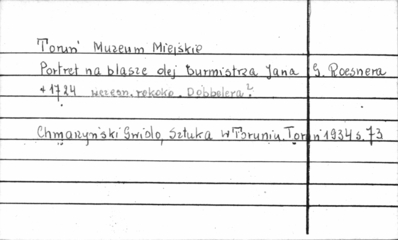 Toruń Muzeum Miejskie
Portret na blasze olej burmistrza Jana G. Roesnera
+1724 wczesn. rokoko. Dobbolera?
Chmarzyński Gwido, Sztuka w Toruniu. Toruń 1934 s. 73